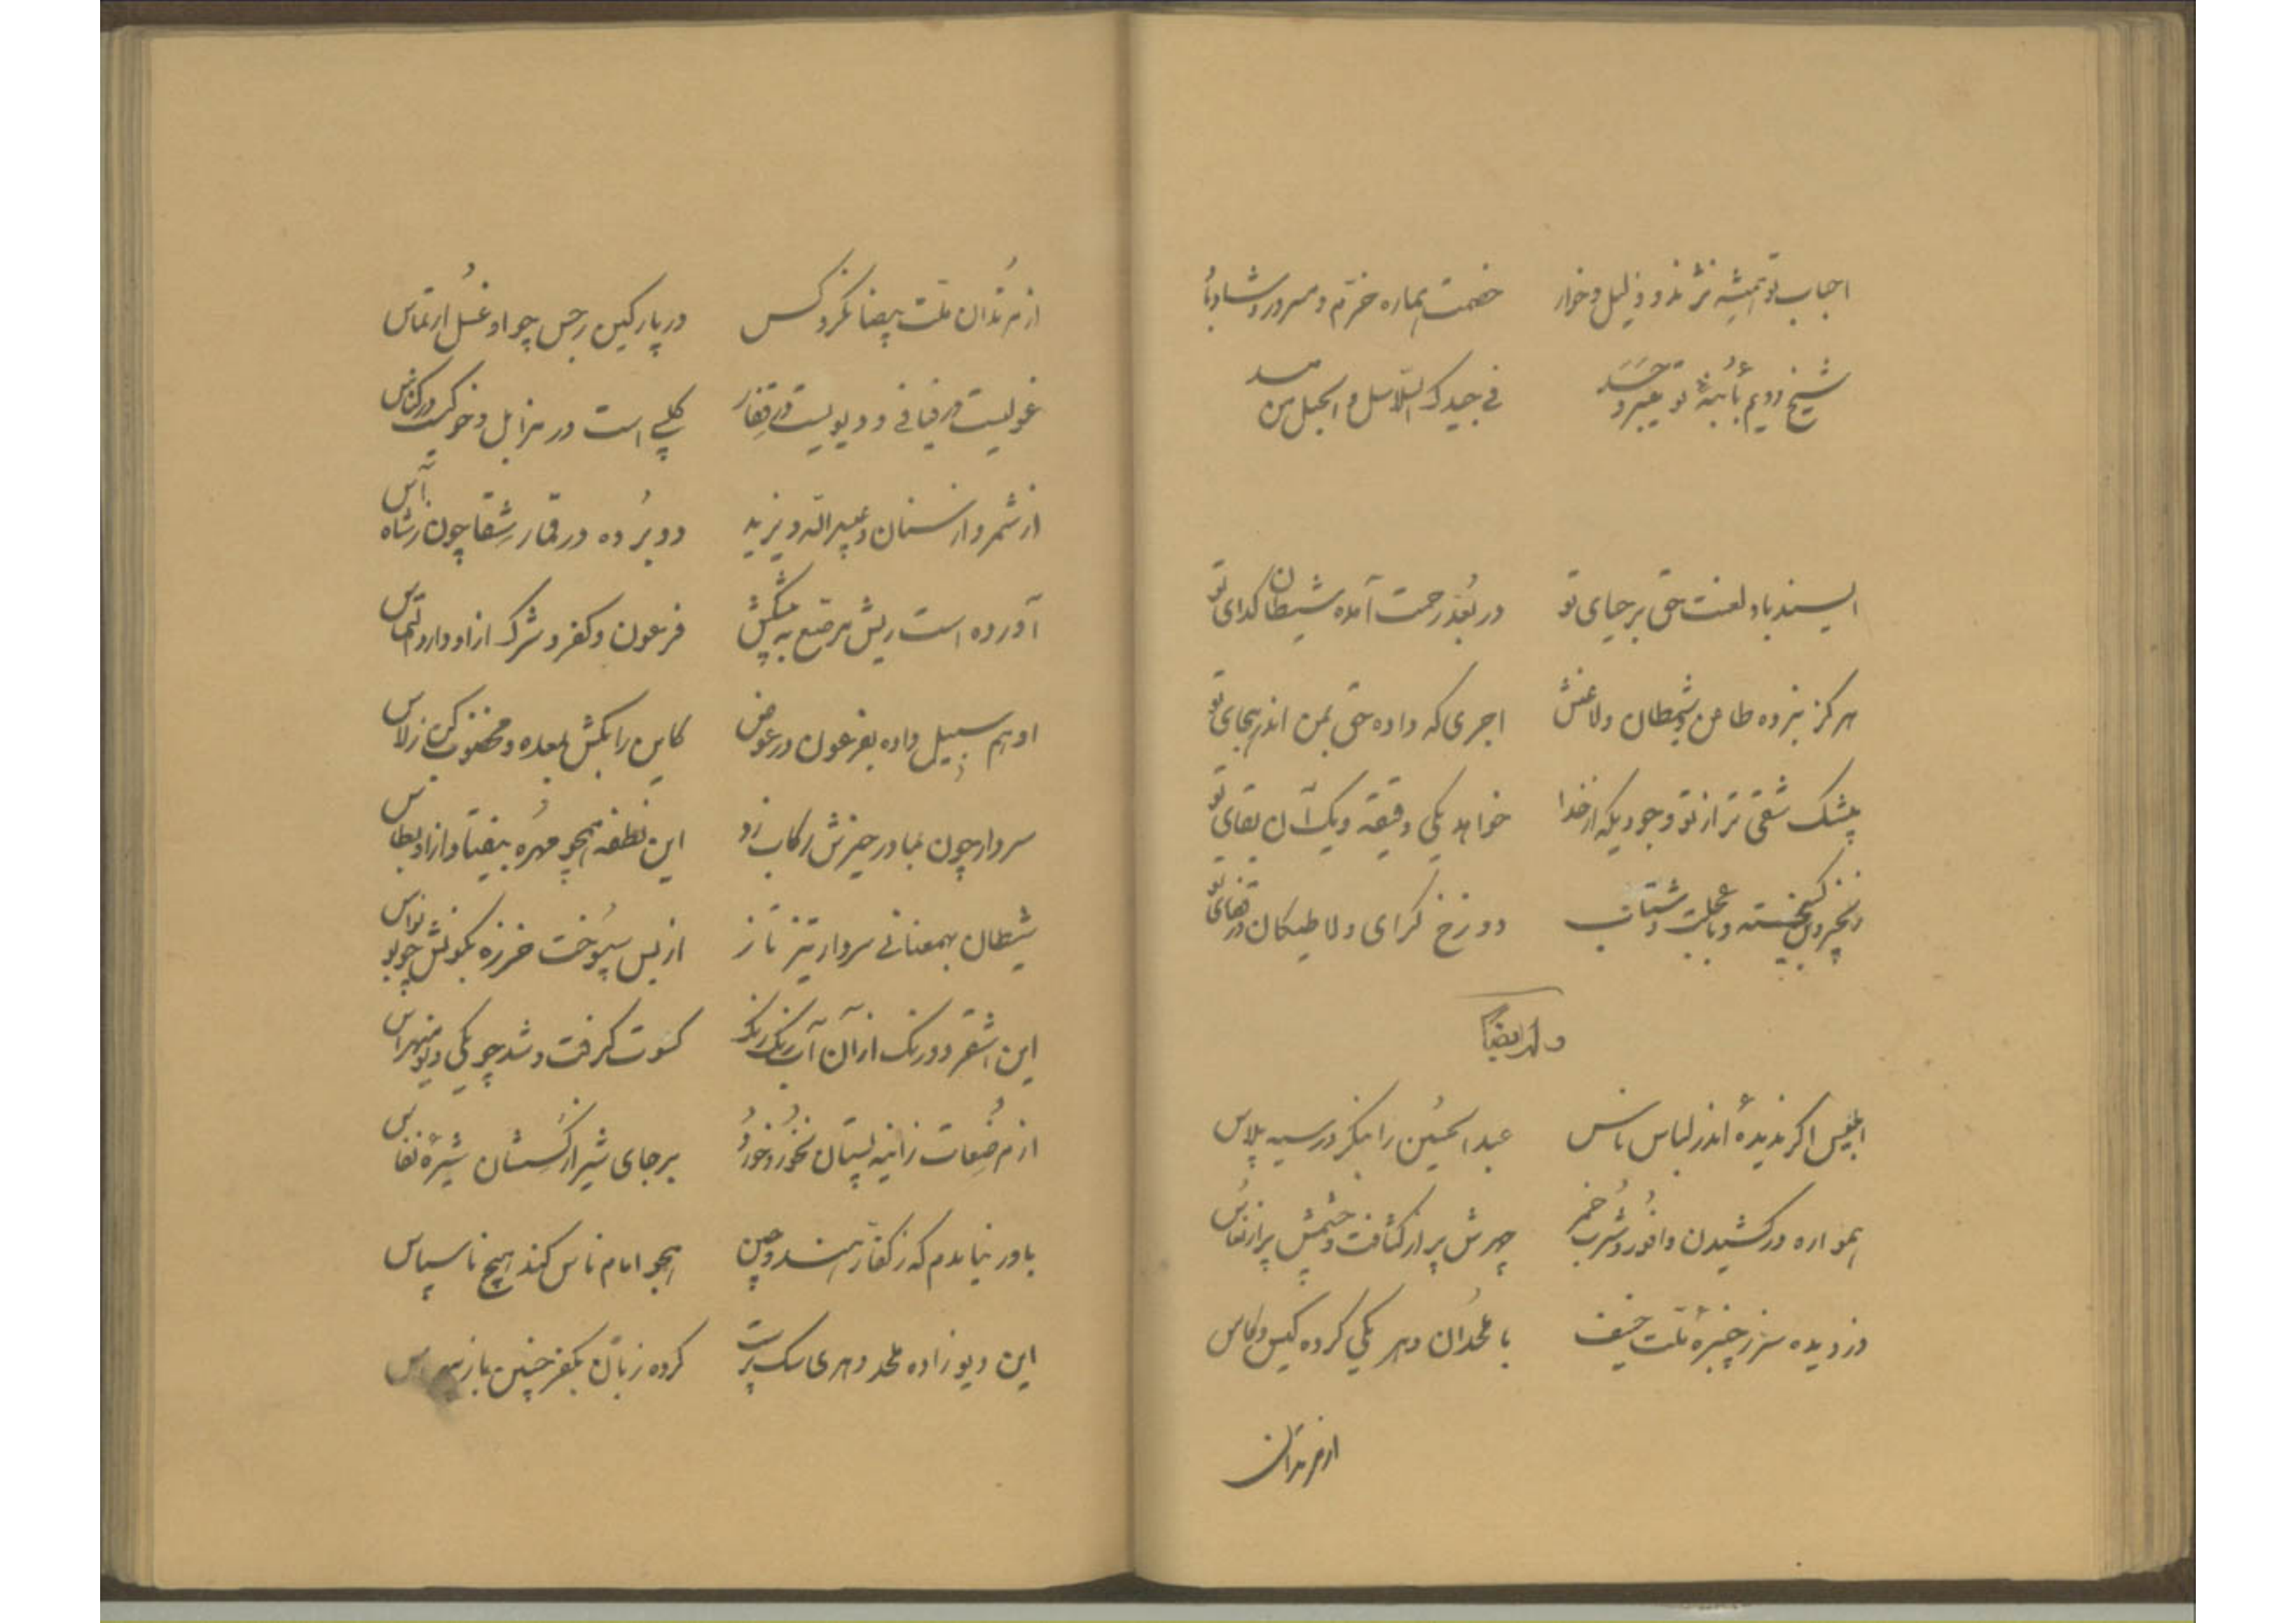 احباب تو همیشه نژند و ذلیل و خوار خصمت هماره خرّم و مسرور و شاد باد
شیخ دویم تو حسد فی جیدک السّلاسل و الحبل من مسد
ای سند باد لعنت حق بر حیای تو در بُعد رحمت آمده شیطان گدای تو
هرگز نبرده طاعن شیطان و لاعنش اجری که داده حق بمن اندر هجای تو
بیشک شقی تر از تو وجودیکه از خدا خواهد یکی دقیقه و یک آن بقای تو
و با عجلت و شتاب دوزخ گرای و لاطیکان در قفای تو
وله ایضاً
ابلیس اگر ندیدهٔ اندر لباس ناس عبدالحسین را بنگر در سیه پلاس
همواره در کشیدن وافور و شرب خمر چهرش پر از کثافت و چشمش پر از نعاس
دزدیده سر ز چنبرهٔ ملت حنیف با ملحدان دهر یکی کرده کیس و کاس
از مرتدان
از مرتدان ملت بیضا نکرد کس در پارکین رجس چو او غسل ارتماس
غولیست در فیافی و دیویست در قفار کلبی است در مزابل و خوکیست در کناس
از شمر و از سنان و عبیدالله و یزید دو بُرده در قمار شقا چون ز شاه آس
آورده است ریش مرصّع به پیشکش فرعون و کفر و شرک از او دارد التماس
او هم سبیل داده بفرعون در عوض کاین را بکش بمعده و مخضوب کن ز لاس
سردار چون نمادر حیزش رکاب زد این نطفه همچو مهره بیفتاد از او بطاس
شیطان بهمعنانی سردار تیز تاز از بس سپوخت خرزه بکونش چو بونواس
این اشقر دو رنگ از آن آب رنگ رنگ کسوت گرفت و شد چو یکی دیو منهراس
از مرضعات زانیه پستان نخورد و خورد بر جای شیر از کُسشان شیرهٔ نفاس
باور نیایدم که ز کفّار هند و چین هجو امام ناس کند هیچ ناسپاس
این دیو زاده ملحد دهری سگ پرست کرده زبان بکفر چنین باز